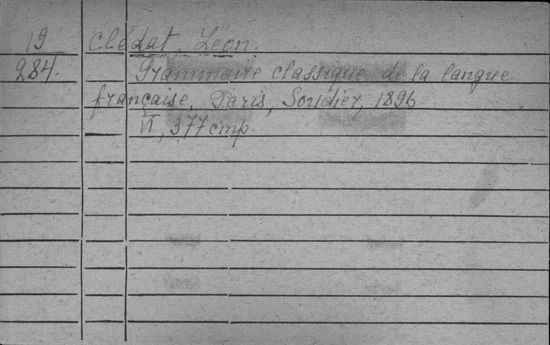 19 Clédat, Léon.
284. Grammaire classique de la langue
française, Paris, Soudier, 1896
VI, 377 стр